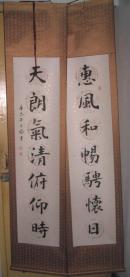 惠風和暢騁懷日
天朗氣清俯仰時